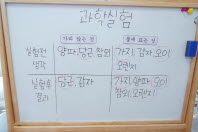 과학실험
가라 앉는 것
물에 뜨는 것
실험전
생각
양파, 당근, 참외
가지, 감자, 오이
오렌지
실험후
결과
당근, 감자
가지, 양파, 오이
참외, 오렌지